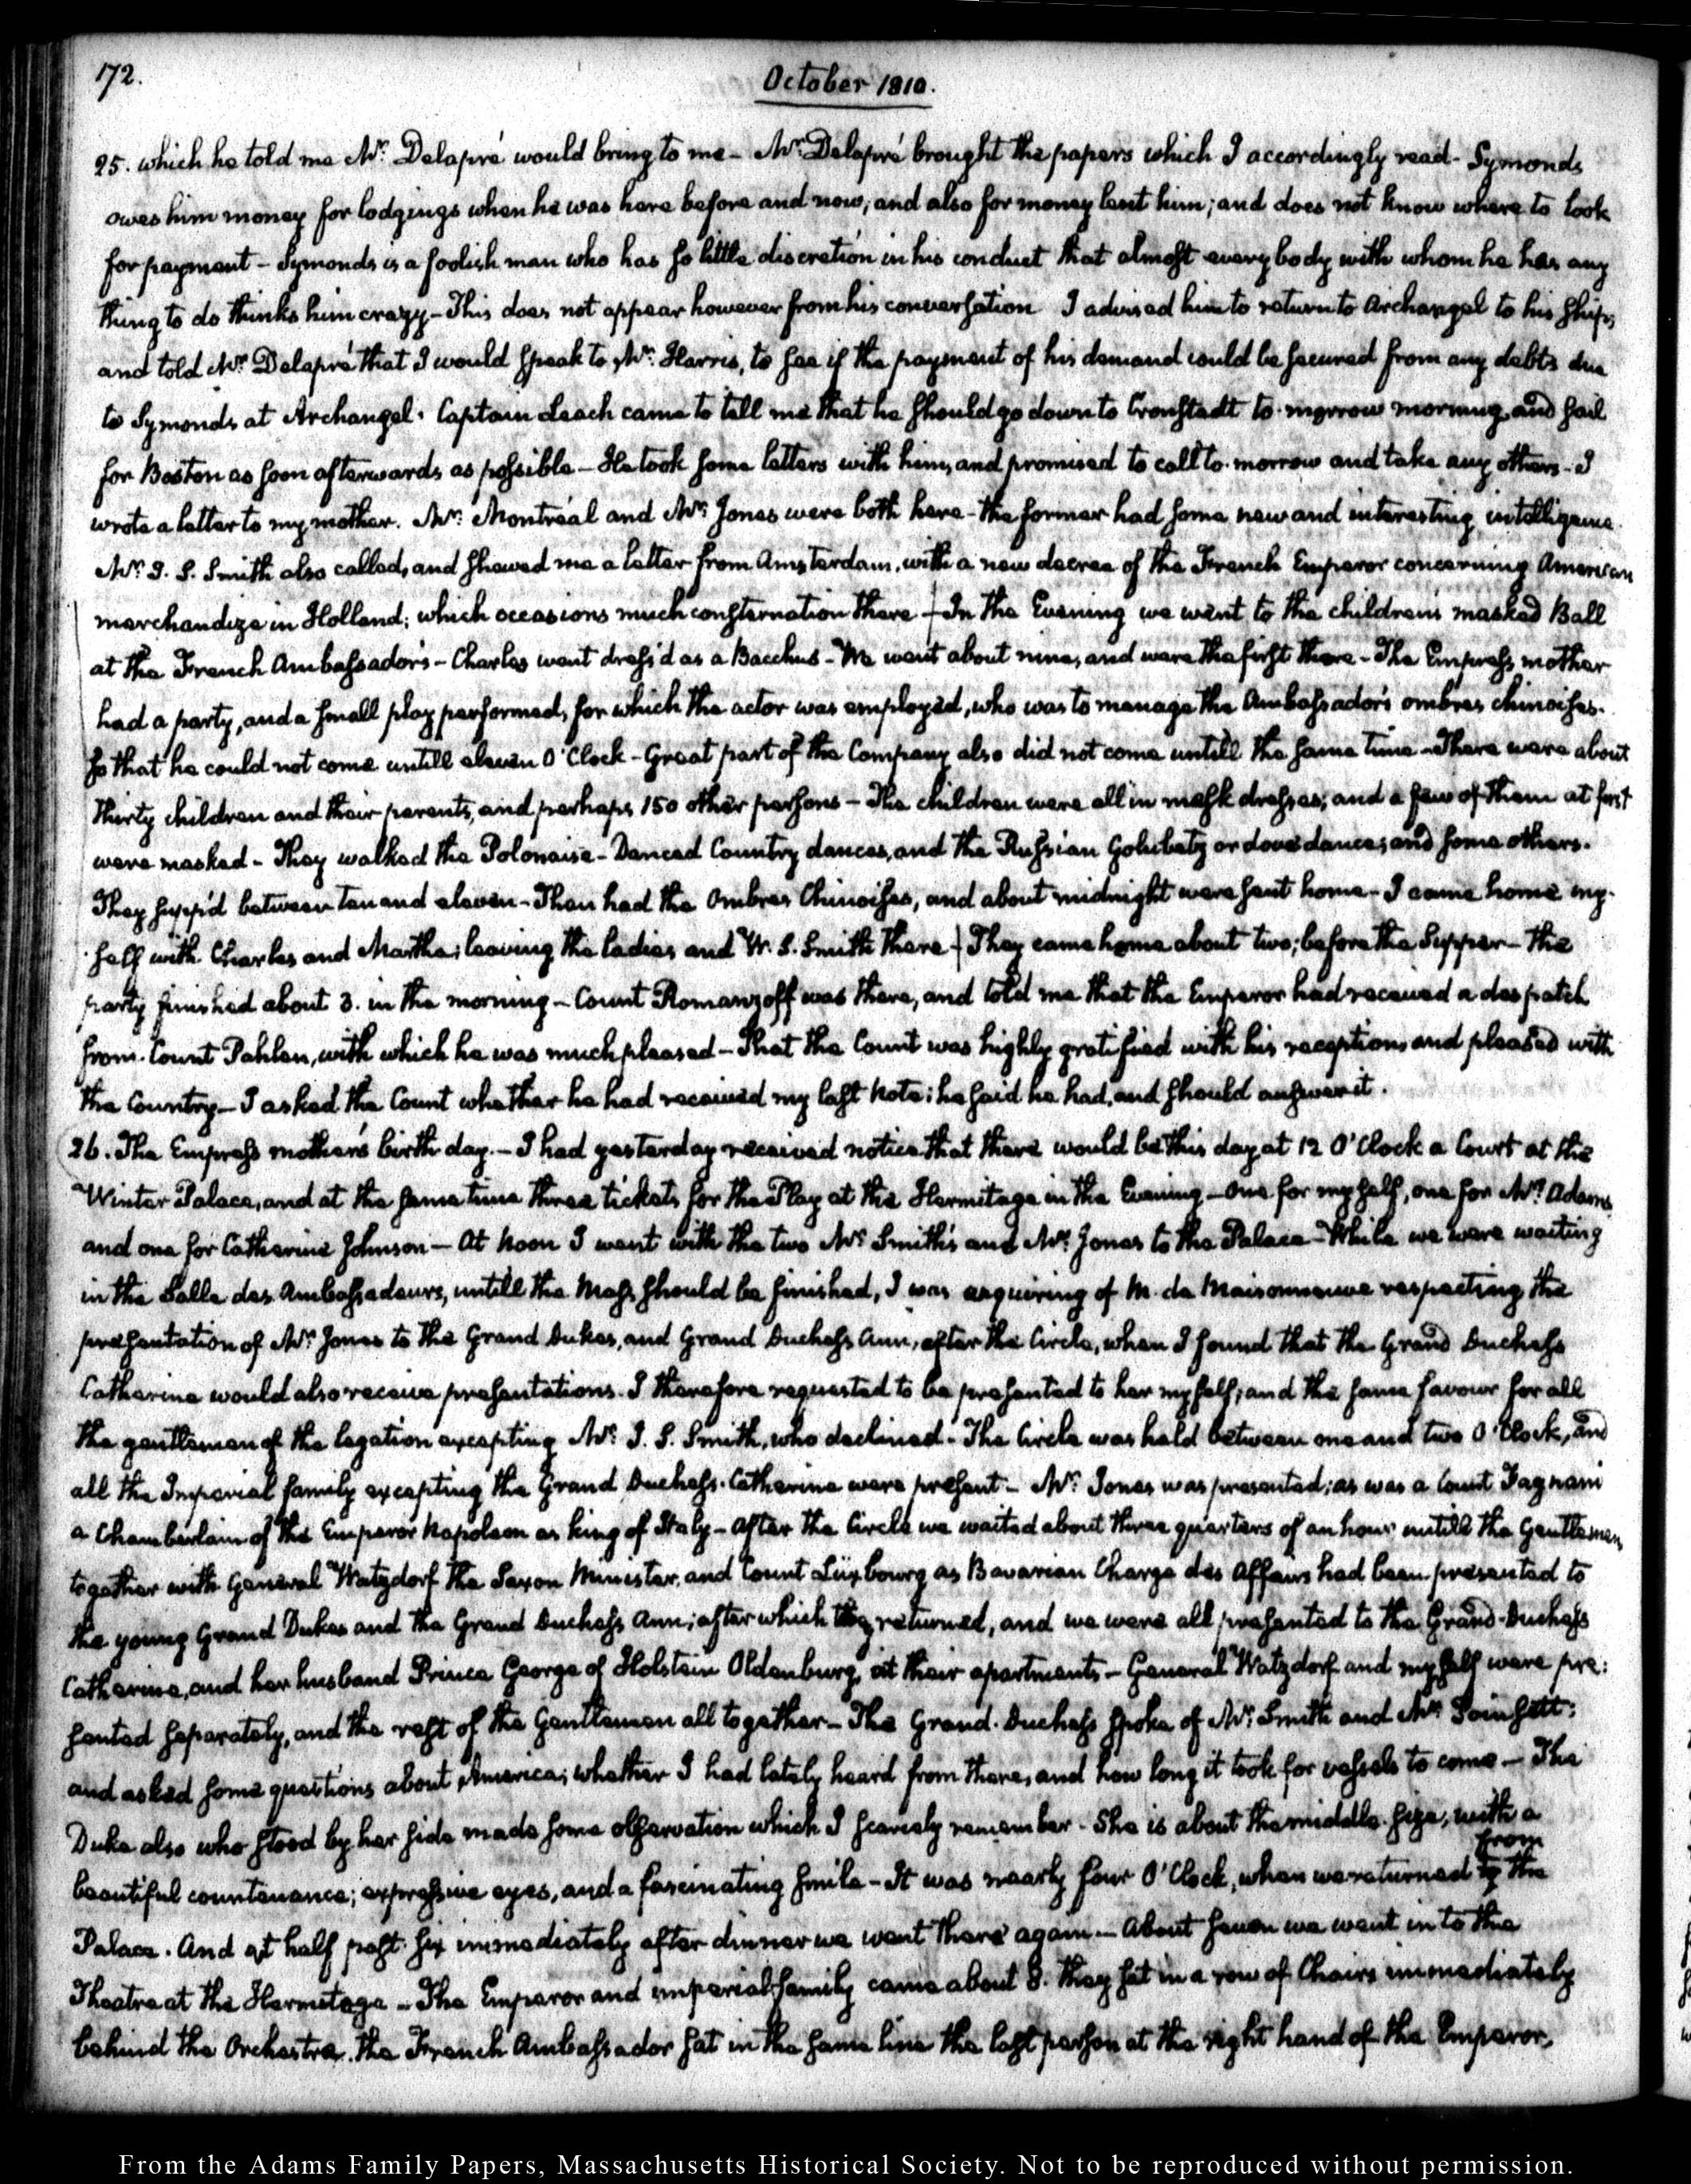 172.
October 1810.
25. which he told me Mr. Delapré would bring to me - Mr. Delapré brought the papers which I accordingly read - Symonds
owes him money for lodgings when he was here before and now, and also for money lent him; and does not know where to look
for payment - Symonds is a foolish man who has so little discretion in his conduct that almost every body with whom he has any
thing to do thinks him crazy - This does not appear however from his conversation I advised him to return to Archangel to his ship,
and told Mr. Delapré that I would speak to Mr. Harris, to see if the payment of his demand could be secured from any debts due
to Symonds at Archangel. Captain Leach came to tell me that he should go down to Cronstadt to-morrow morning, and sail
for Boston as soon afterwards as possible - He took some letters with him, and promised to call to-morrow and take any others - I
wrote a letter to my mother. Mr. Montréal and Mr. Jones were both here - the former had some new and interesting intelligence.
Mr. J. S. Smith also called, and shewed me a letter from Amsterdam, with a new decree of the French Emperor concerning American
merchandize in Holland; which occasions much consternation there - In the Evening we went to the children's masked Ball
at the French Ambassador's - Charles went dress'd as a Bacchus - We went about nine, and were the first there - The Empress mother
had a party, and a small play performed, for which the actor was employed, who was to manage the Ambassador's ombres chinoises.
So that he could not come untill eleven O'Clock - Great part of the Company also did not come untill the same time - There were about
thirty children and their parents, and perhaps 150 other persons - The children were all in mask dresses; and a few of them at first
were masked - They walked the Polonaise - Danced Country dances, and the Russian Golubetz or dove dances; and some others.
They supp'd between ten and eleven - Then had the Ombres Chinoises, and about midnight were sent home - I came home my-
self with Charles and Martha; leaving the ladies and W. S. Smith there - They came home about two; before the Supper - The
party finished about 3. in the morning - Count Romanzoff was there, and told me that the Emperor had received a despatch
from Count Pahlen, with which he was much pleased - That the Count was highly gratified with his reception and pleased with
the Country - I asked the Count whether he had received my last Note: he said he had, and should answer it.
26. The Empress mother's birth day. - I had yesterday received notice that there would be this day at 12 O'Clock a Court at the
Winter Palace, and at the same time three tickets for the Play at the Hermitage in the Evening - One for myself, one for Mrs. Adams
and one for Catherine Johnson - At Noon I went with the two Mr. Smith's and Mr. Jones to the Palace - While we were waiting
in the Salle des Ambassadeurs, untill the Mass should be finished, I was enquiring of M. de Maisonneuve respecting the
presentation of Mr. Jones to the Grand Dukes, and Grand Duchess Ann, after the Circle, when I found that the Grand Duchess
Catharine would also receive presentations. I therefore requested to be presented to her myself, and the same favour for all
the gentlemen of the legation excepting Mr. J. S. Smith, who declined - The Circle was held between one and two O'Clock, and
all the Imperial family excepting the Grand Duchess Catherine were present - Mr. Jones was presented; as was a Count Fagnani
a Chamberlain of the Emperor Napoleon as King of Italy - After the Circle we waited about three quarters of an hour untill the Gentlemen,
together with General Watzdorf the Saxon Minister, and Count Luxbourg as Bavarian Chargé des Affaires had been presented to
the young Grand Dukes and the Grand Duchess Ann; after which they returned, and we were all presented to the Grand-Duchess
Catharine, and her husband Prince George of Holstein Oldenburg, at their apartments - General Watzdorf and myself were pre:
sented separately, and the rest of the Gentlemen all together - The Grand-Duchess spoke of Mr. Smith and Mr. Poinsett:
and asked some questions about America; whether I had lately heard from there, and how long it took for vessels to come - The
Duke also who stood by her side made some observation which I scarcely remember - She is about the middle size, with a
beautiful countenance; expressive eyes, and a fascinating smile - It was nearly four O'Clock, when we returned from the
Palace. And at half past six immediately after dinner we went there again - About seven we went in to the
Theatre at the Hermitage - The Emperor and imperial family came about 8. they sat in a row of Chairs immediately
behind the Orchestra. The French Ambassador sat in the same line the last person at the right hand of the Emperor,
From the Adams Family Papers, Massachusetts Historical Society. Not to be reproduced without permission.